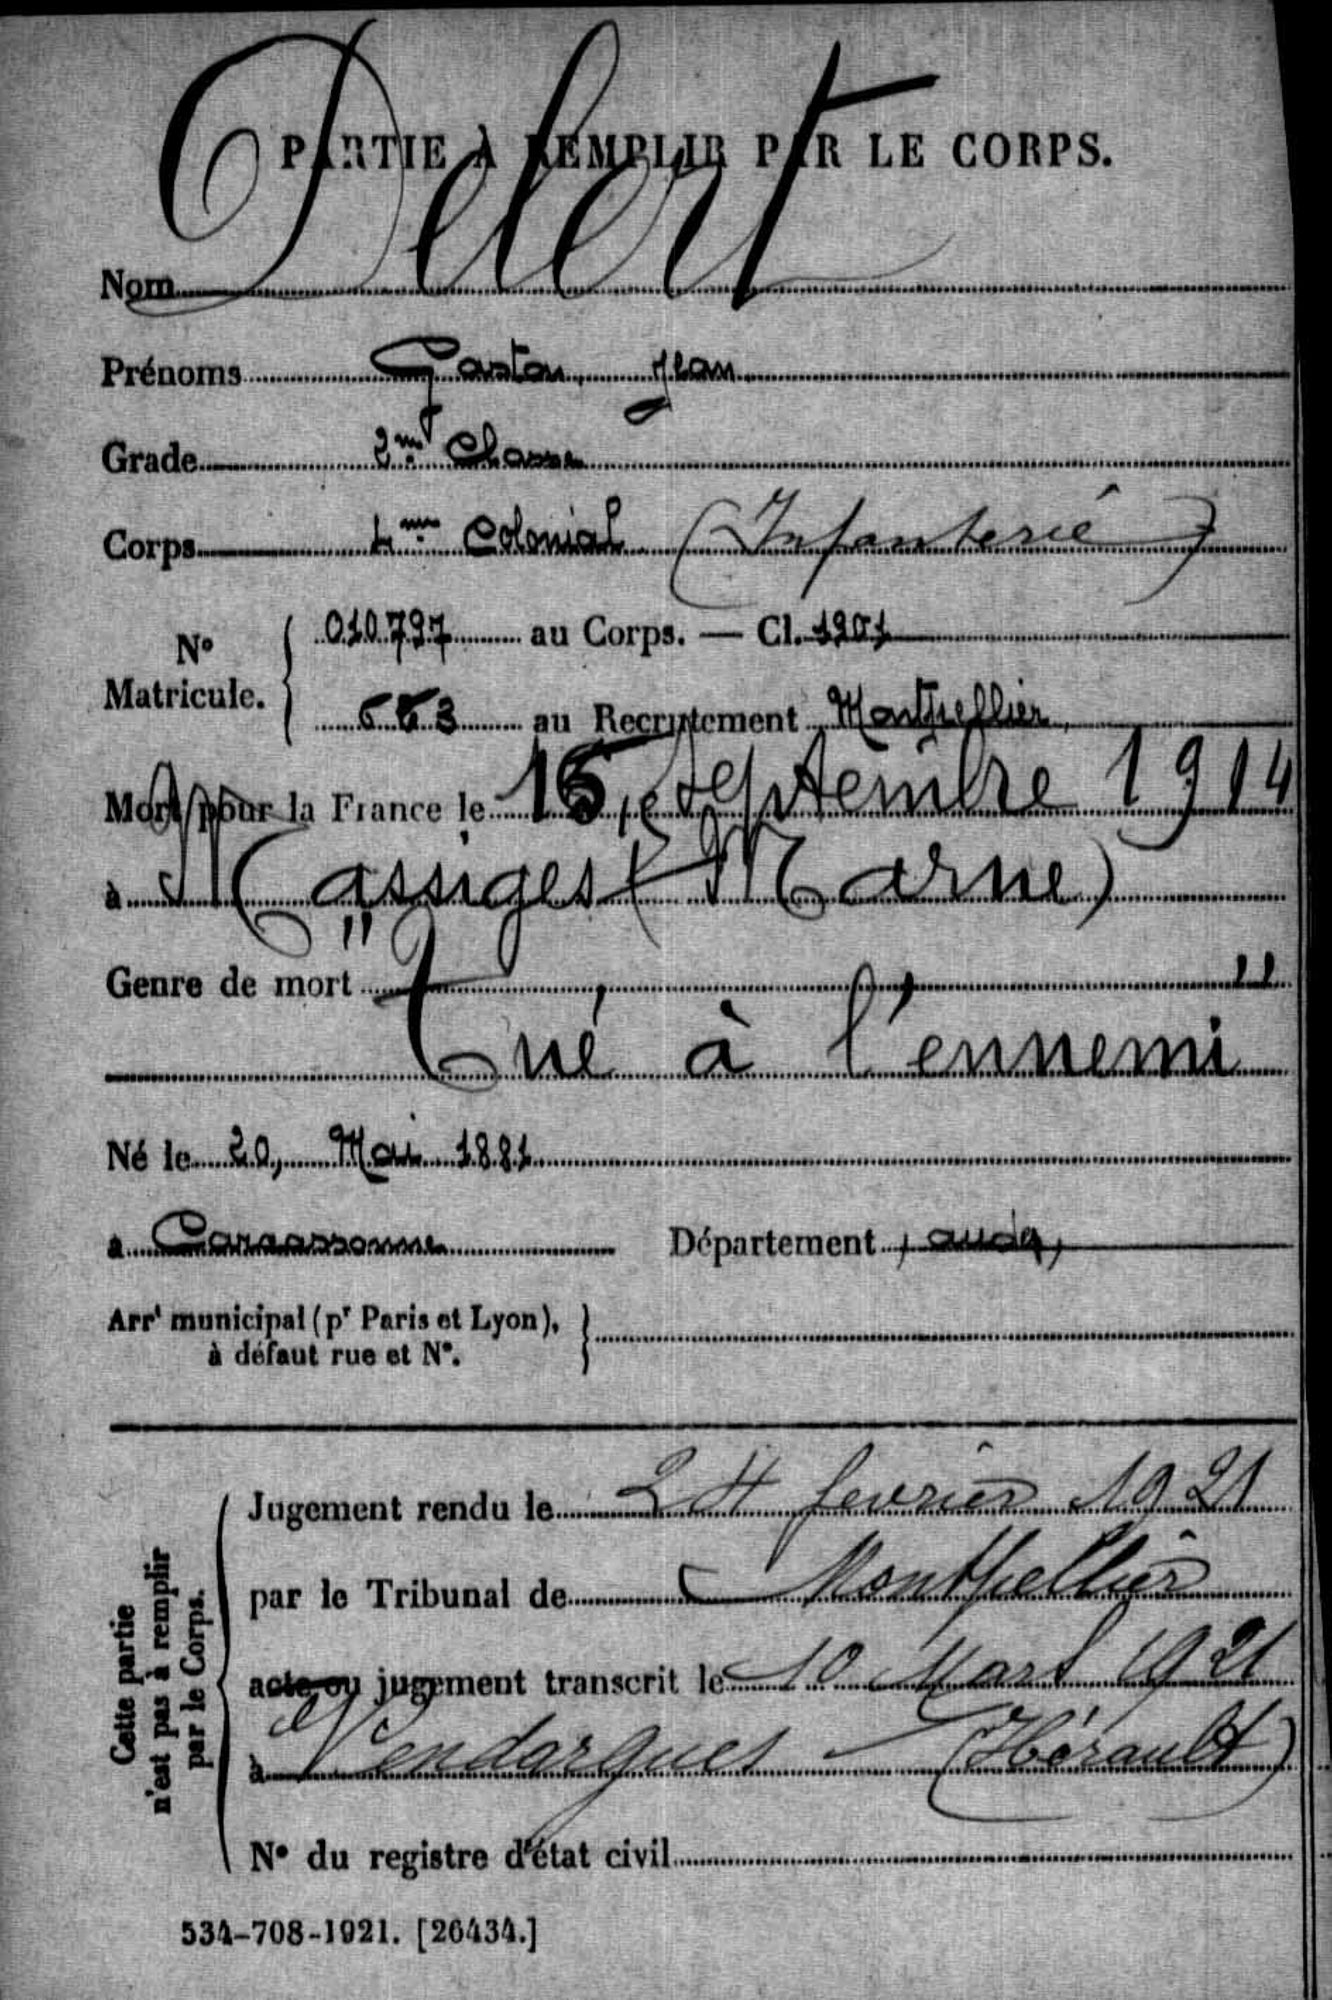 PARTIE À REMPLIR PAR LE CORPS.
Nom Delert
Prénoms Gaston Jean
Grade 2me Classe
Corps 4me Colonial (Infanterie)
N° Matricule. { 010797 au Corps. — Cl. 1901
663 au Recrutement Montpellier
Mort pour la France le 15 Septembre 1914
à Massiges (Marne)
Genre de mort "
"
Tué à l'ennemi
Né le 20, Mai 1881
à Carcassonne Département, aude,
Arrt municipal (pr Paris et Lyon), à défaut rue et N°. }
Cette partie n'est pas à remplir par le Corps.
Jugement rendu le 24 fevrier 1921
par le Tribunal de Montpellier
acte ou jugement transcrit le 10 Mars 1921
à Vendargues (Hérault)
N° du registre d'état civil
534-708-1921. [26434.]